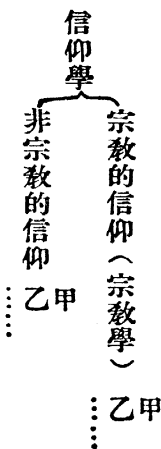 信仰學
宗教的信仰（宗教學）
甲
乙
……
非宗教的信仰
甲
乙
……